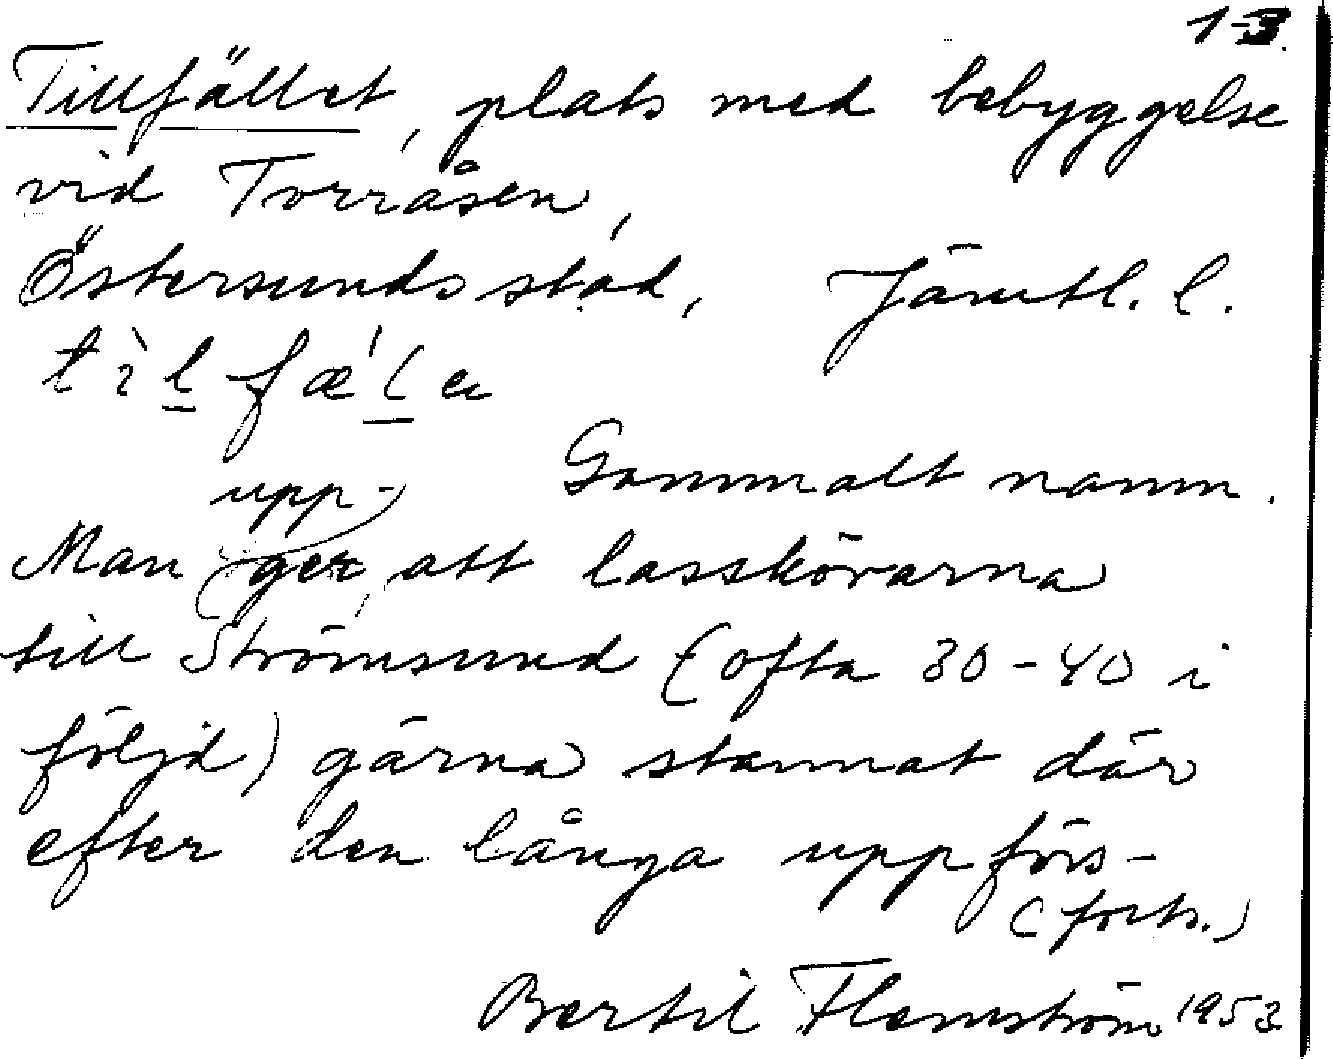 1-3.
Tillfället, plats med bebyggelse
vid Torråsen,
Östersunds stad, Jämtl. l.
tìlfæ'la
upp- Gammalt namn.
Man ger, att lasskörarna
till Strömsund (ofta 30-40 i
följd) gärna stannat där
efter den långa uppförs-
(forts.)
Bertil Flemström 1953